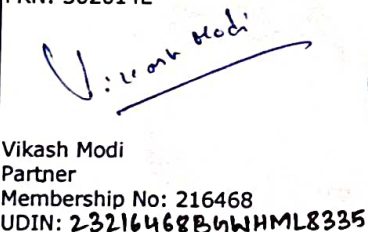 Vikash Modi
Vikash Modi
Partner
Membership No: 216468
UDIN: 23216468BGWHML8335